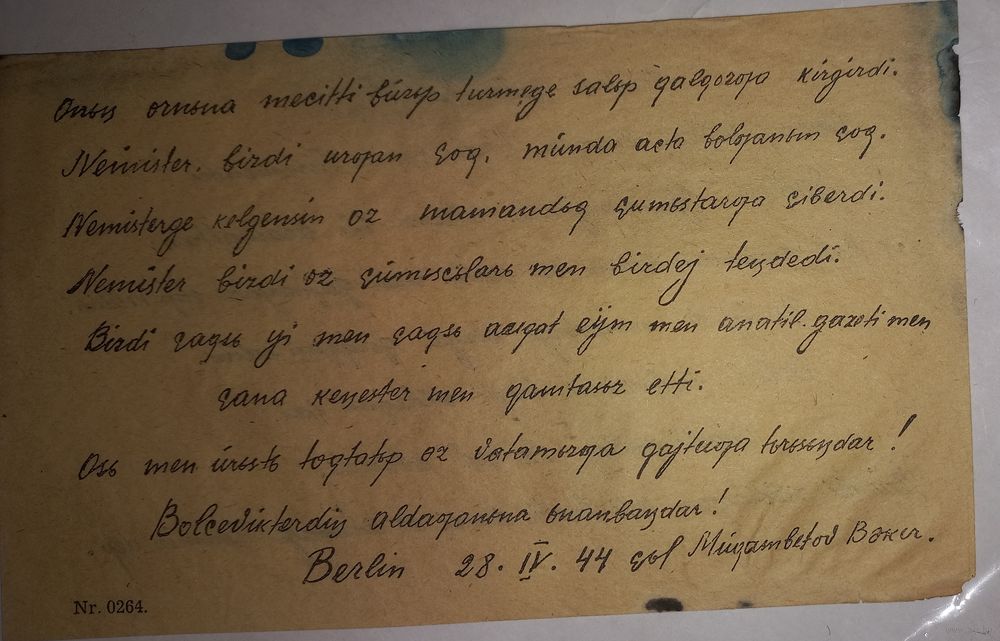 Onьꞑ ornьna mecitti búzьp túrmege salьp qalqozƣa kirgizdi.
Nemister. bizdi urƣan çoq. munda aeta bolƣanьm çoq.
Nemisterge kelgensin oz mamandьq çumьstarƣa çiberdi.
Nemister bizdi oz çúmьscьlarь men birdej teꞑdedi.
Bizdi çaqsь yj men çaqsь azьqat eijm men anatil. gazeti men
çana keꞑester men qamtasьz etti.
Osь men úrьstь toqtatьp oz Vatamьzƣa qajtuƣa tьrьsьꞑdar!
Bolcevikterdiꞑ aldaƣanьna ьnanbaꞑdar!
Berlin 28. IV. 44 çьl Múqambetov Bəker.
Nr. 0264.